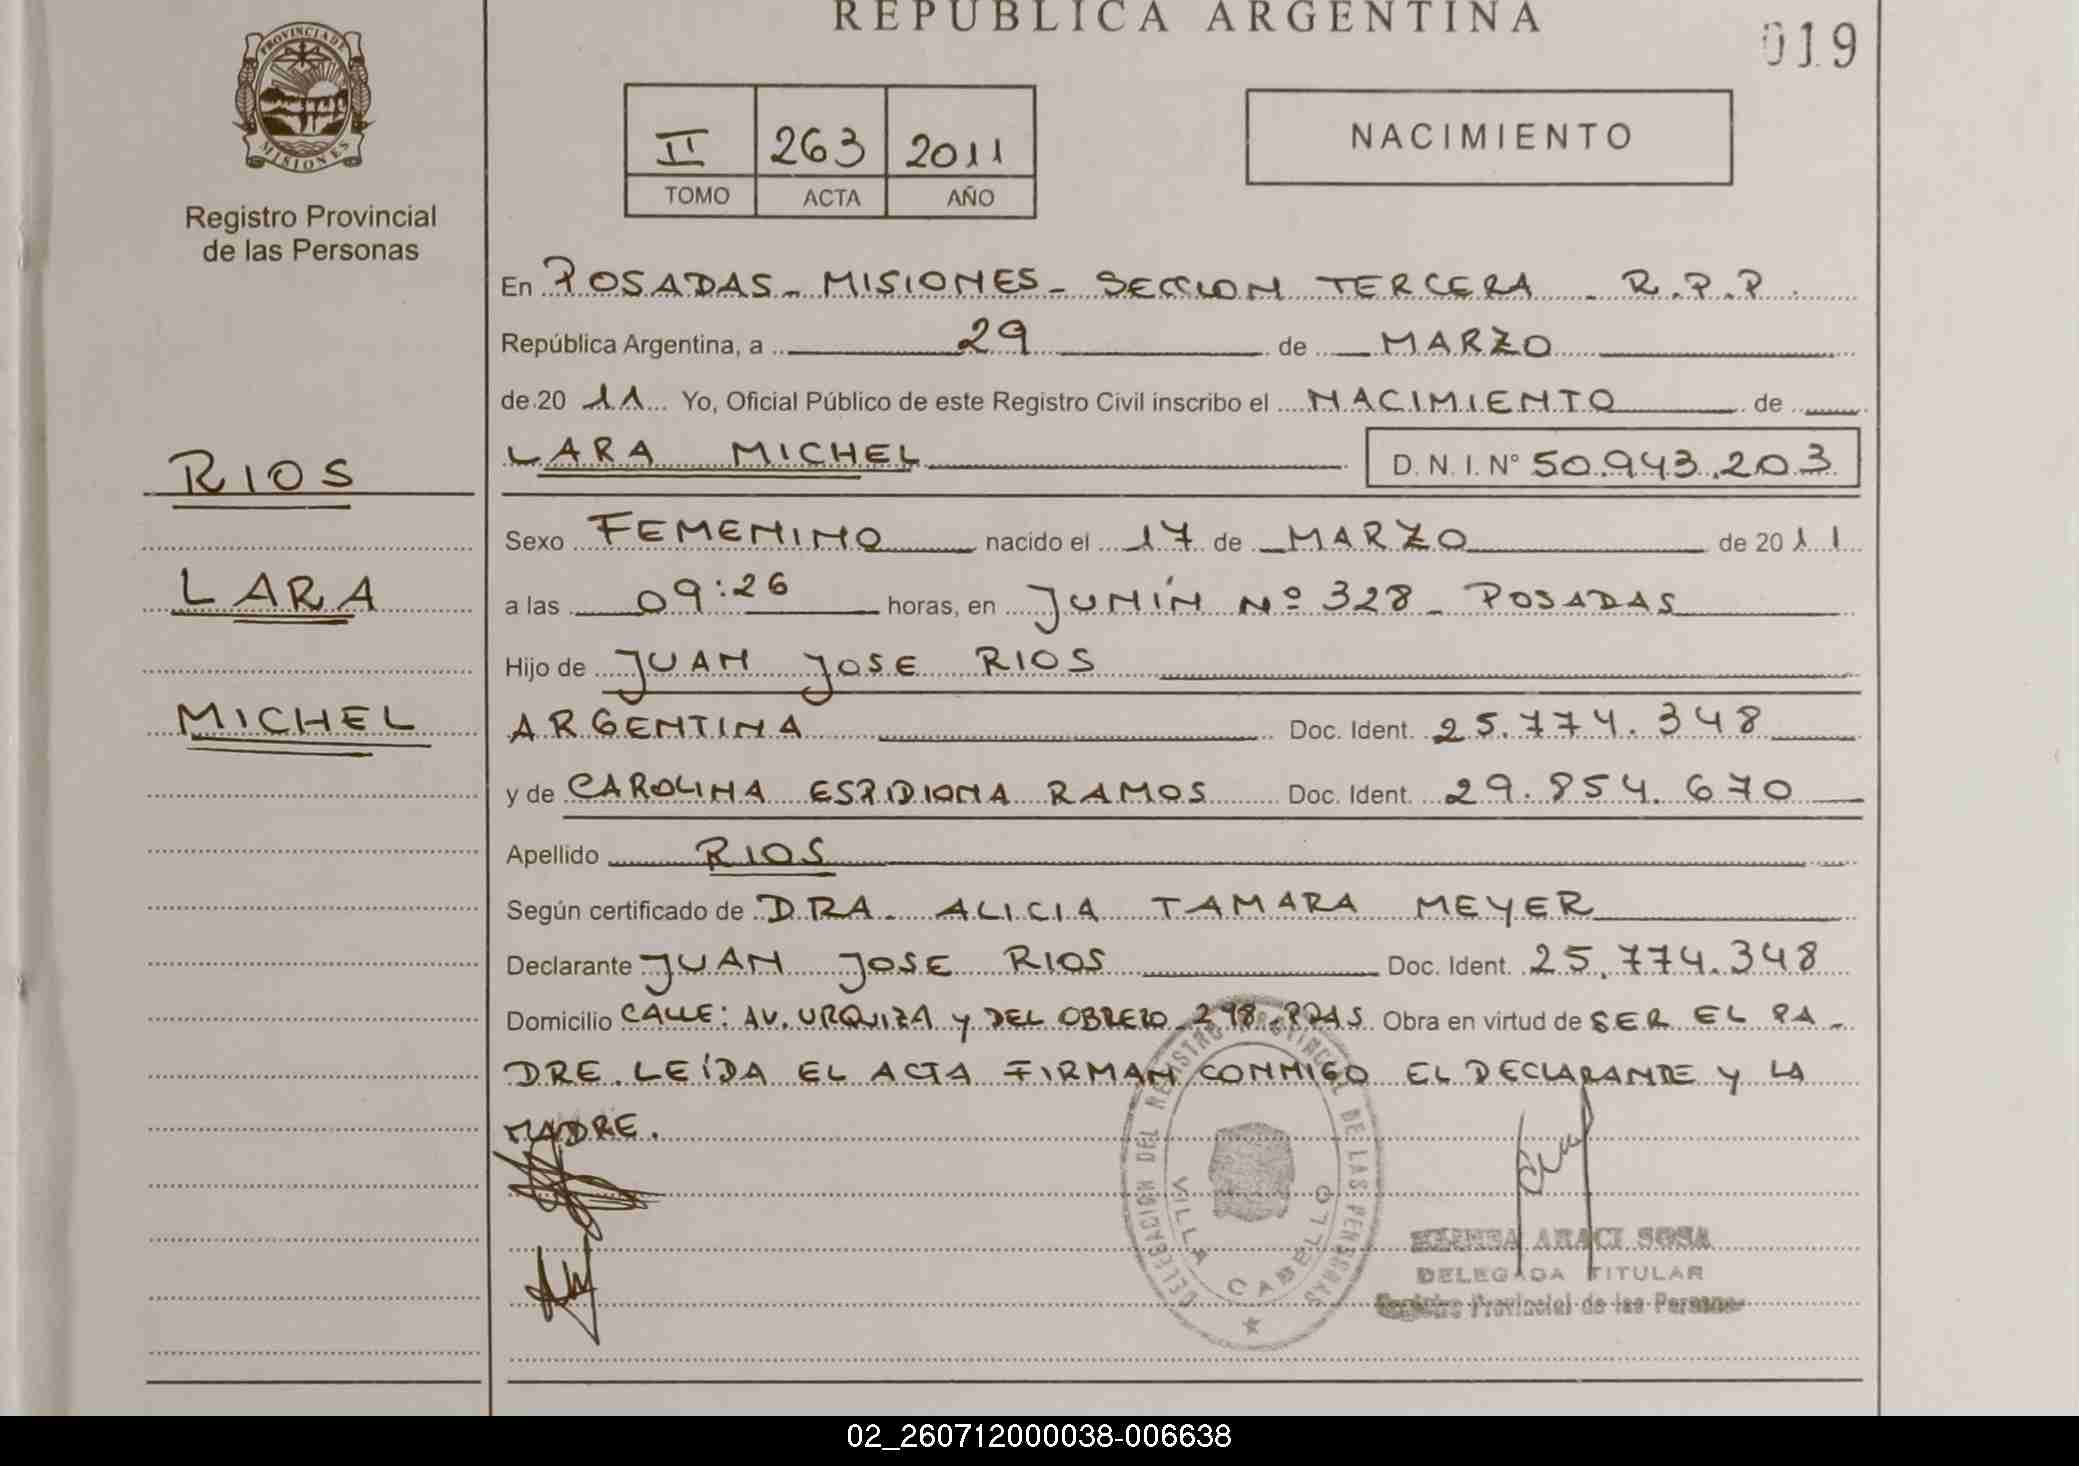 REPUBLICA ARGENTINA
019
PROVINCIA DE
MISIONES
Registro Provincial
de las Personas
II 263 2011
TOMO ACTA AÑO
NACIMIENTO
En POSADAS - MISIONES - SECCION TERCERA - R.P.P.
República Argentina, a 29 de MARZO
de 20 11 Yo, Oficial Público de este Registro Civil inscribo el NACIMIENTO de
LARA MICHEL D. N. I. N° 50.943.203
RIOS
LARA
MICHEL
Sexo FEMENINO nacido el 17 de MARZO de 20 11
a las 09:26 horas, en JUNÍN Nº 328 - POSADAS
Hijo de JUAN JOSE RIOS
ARGENTINA Doc. Ident. 25.774.348
y de CAROLINA ESPIDIONA RAMOS Doc. Ident. 29.854.670
Apellido RIOS
Según certificado de DRA. ALICIA TAMARA MEYER
Declarante JUAN JOSE RIOS Doc. Ident. 25.774.348
Domicilio CALLE: AV. URQUIZA y DEL OBRERO 298 - PDAS Obra en virtud de SER EL PA-
DRE. LEÍDA EL ACTA FIRMAN CONMIGO EL DECLARANTE y LA
MADRE.
DELEGACION DEL REGISTRO PROVINCIAL DE LAS PERSONAS
VILLA CABELLO
ARACI SOSA
DELEGADA TITULAR
Registro Provincial de las Personas
02_260712000038-006638